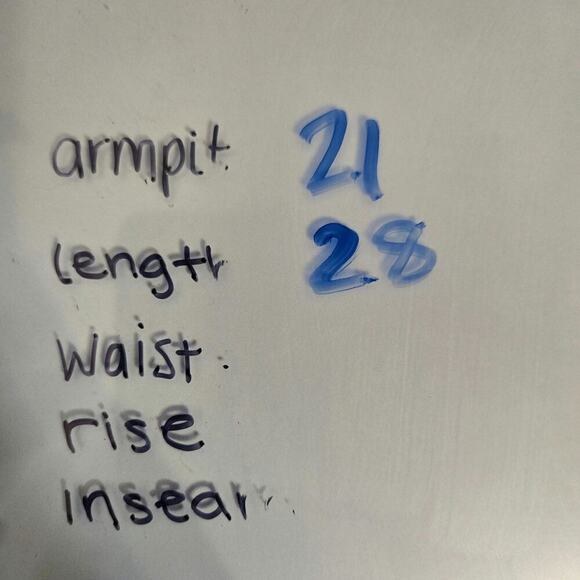 armpit 21
length 28
waist
rise
inseam